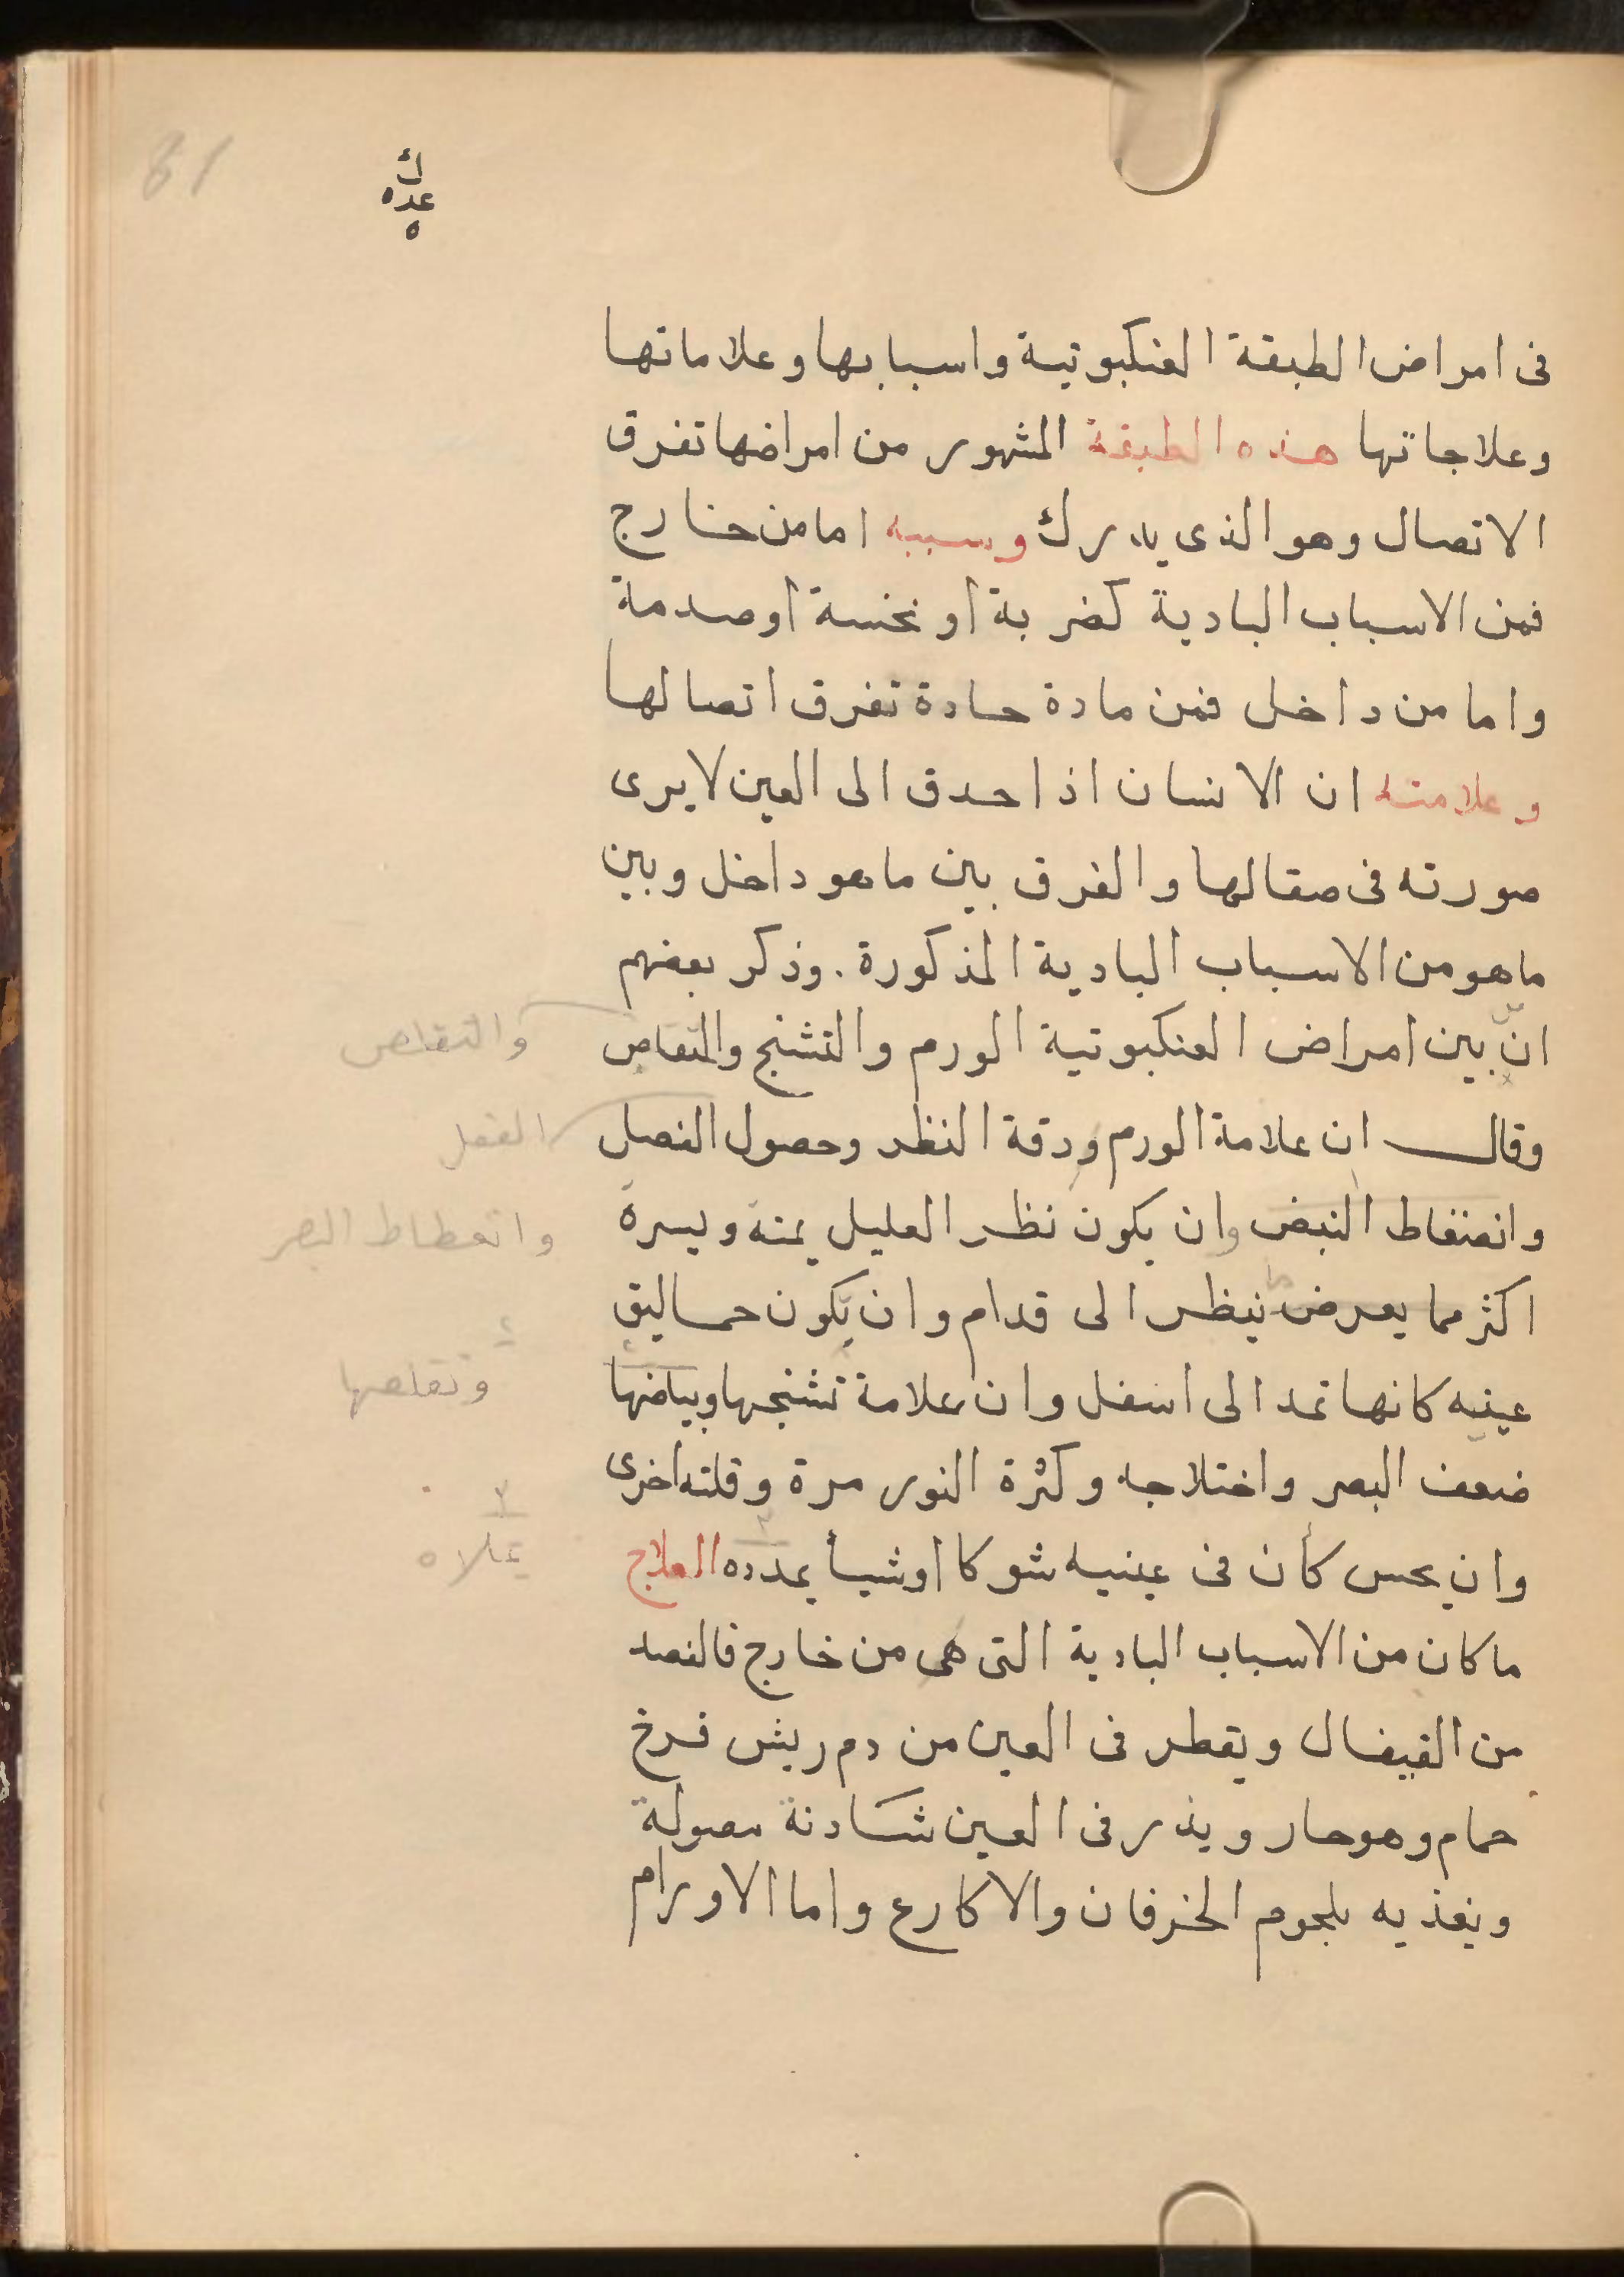 81
ك
عده
٥
فى امراض الطبقة العنكبوتية واسبابها وعلاماتها
وعلاجاتها هذه الطبقة المشهور من امراضها تفرق
الاتصال وهو الذى يدرك وسببه اما من خارج
فمن الاسباب البادية كضربة او نخسة او صدمة
واما من داخل فمن مادة حادة تفرق اتصالها
وعلامته ان الانسان اذا حدق الى العين لا يرى
صورته فى صقالها والفرق بين ما هو داخل وبين
ما هو من الاسباب البادية المذكورة. وذكر بعضهم
ان بين امراض العنكبوتية الورم والتشنج والتعاص
والتقلص
وقال ان علامة الورم ودقة النظر وحصول الفصل
العقل
وانضغاط النبض وان يكون نظر العليل يمنة ويسرة
وانحطاط البصر
اكثر مما يعرض ينظر الى قدام وان يكون حماليق
عينيه كانها تمد الى اسفل وان علامة تشنجها وبياضها
وتقلصها
ضعف البصر واختلاجه وكثرة النور مرة وقلته اخرى
وان يحس كأن فى عينيه شوكا او شيأ يمدده العلاج
يملاه
ما كان من الاسباب البادية التى هى من خارج فالفصد
من القيفال ويقطر فى العين من دم ريش فرخ
حمام وهو حار ويذر فى العين شادنة مصولة
ويغذيه بلحوم الخرفان والاكارع واما الاورام